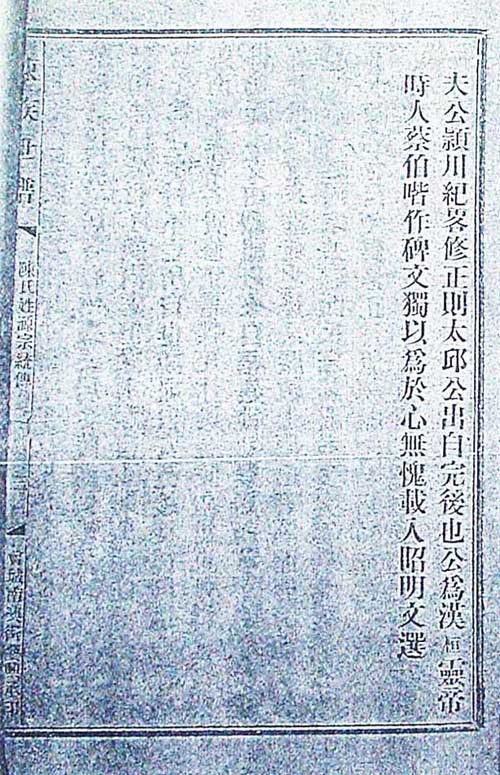 夫公頴川紀畧修正則太邱公出自完後也公爲漢桓靈帝
時人蔡伯喈作碑文獨以爲於心無愧載入昭明文選
陳氏姓源宗統傳